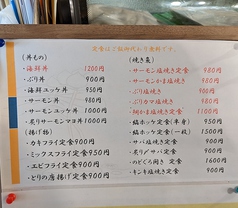 定食はご飯御代わり無料です。
(丼もの)
・海鮮丼 1200円
・ぶり丼 900円
・海鮮ユッケ丼 950円
・サーモン丼 980円
・サーモンユッケ丼 1000円
・炙りサーモンマヨ丼 1000円
(揚げ物)
・カキフライ定食900円
・ミックスフライ定食950円
・エビフライ定食900円
・とりの唐揚げ定食900円
(焼き魚)
・サーモン塩焼き定食 980円
・サーモンかま塩焼き定食 980円
・ぶり塩焼き定食 900円
・ブリカマ塩焼き 980円
・鯛かま塩焼き定食 1100円
・縞ホッケ定食(半身) 950円
・縞ホッケ定食(一枚) 1500円
・サバ塩焼き定食 900円
・炙り〆サバ定食 900円
・のどぐろ開き定食 1600円
・キンキ塩焼き定食 900円